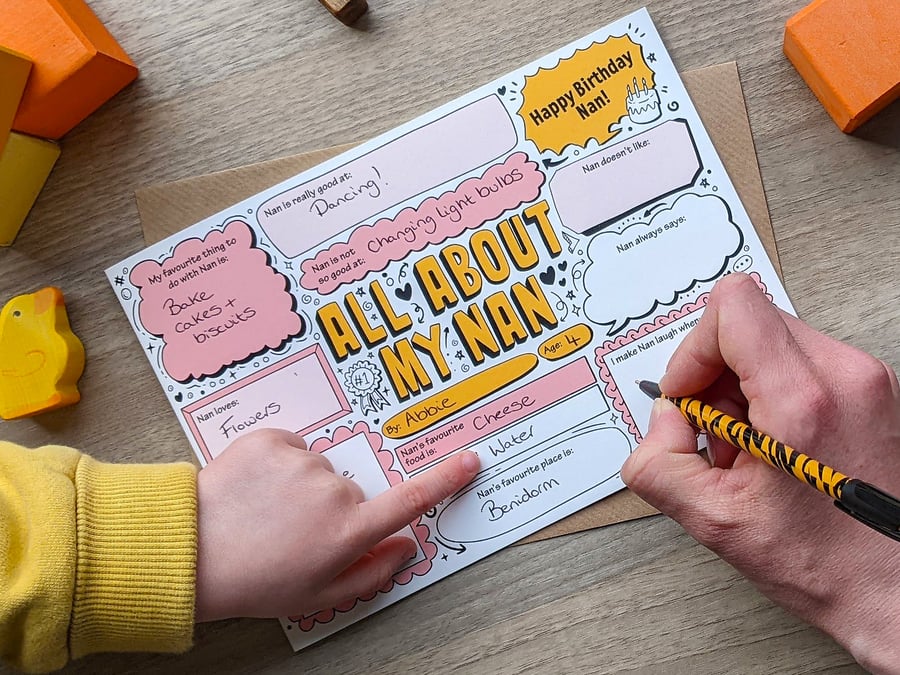 Happy Birthday
Nan!
Nan is really good at:
Dancing!
Nan doesn't like:
Nan is not
so good at:
Changing light bulbs
My favourite thing to
do with Nan is:
Bake
cakes +
biscuits
Nan always says:
ALL ABOUT
MY NAN
#1
By: Abbie
Age: 4
I make Nan laugh when
Nan loves:
Flowers
Nan's favourite
food is:
Cheese
Water
Nan's favourite place is:
Benidorm